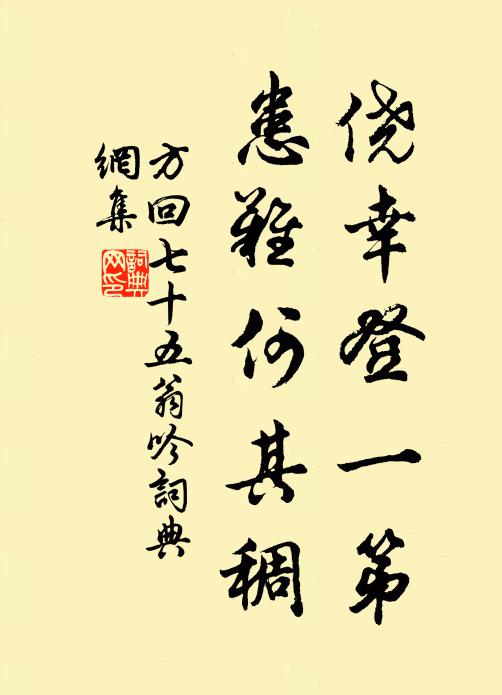 侥幸登一第
患難何其稠
方回七十五翁吟詞典
網集
詞典
网印